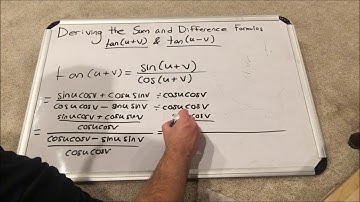 Deriving the Sum and Difference Formulas
tan(u+v) & tan(u-v)
tan(u+v) = sin(u+v)
cos(u+v)
= sinu cosv + cosu sinv ÷ cosu cosv
cosu cosv - sinu sinv ÷ cosu cosv
sinu cosv + cosu sinv
cosu cosv
=
cosu cosv - sinu sinv
cosu cosv